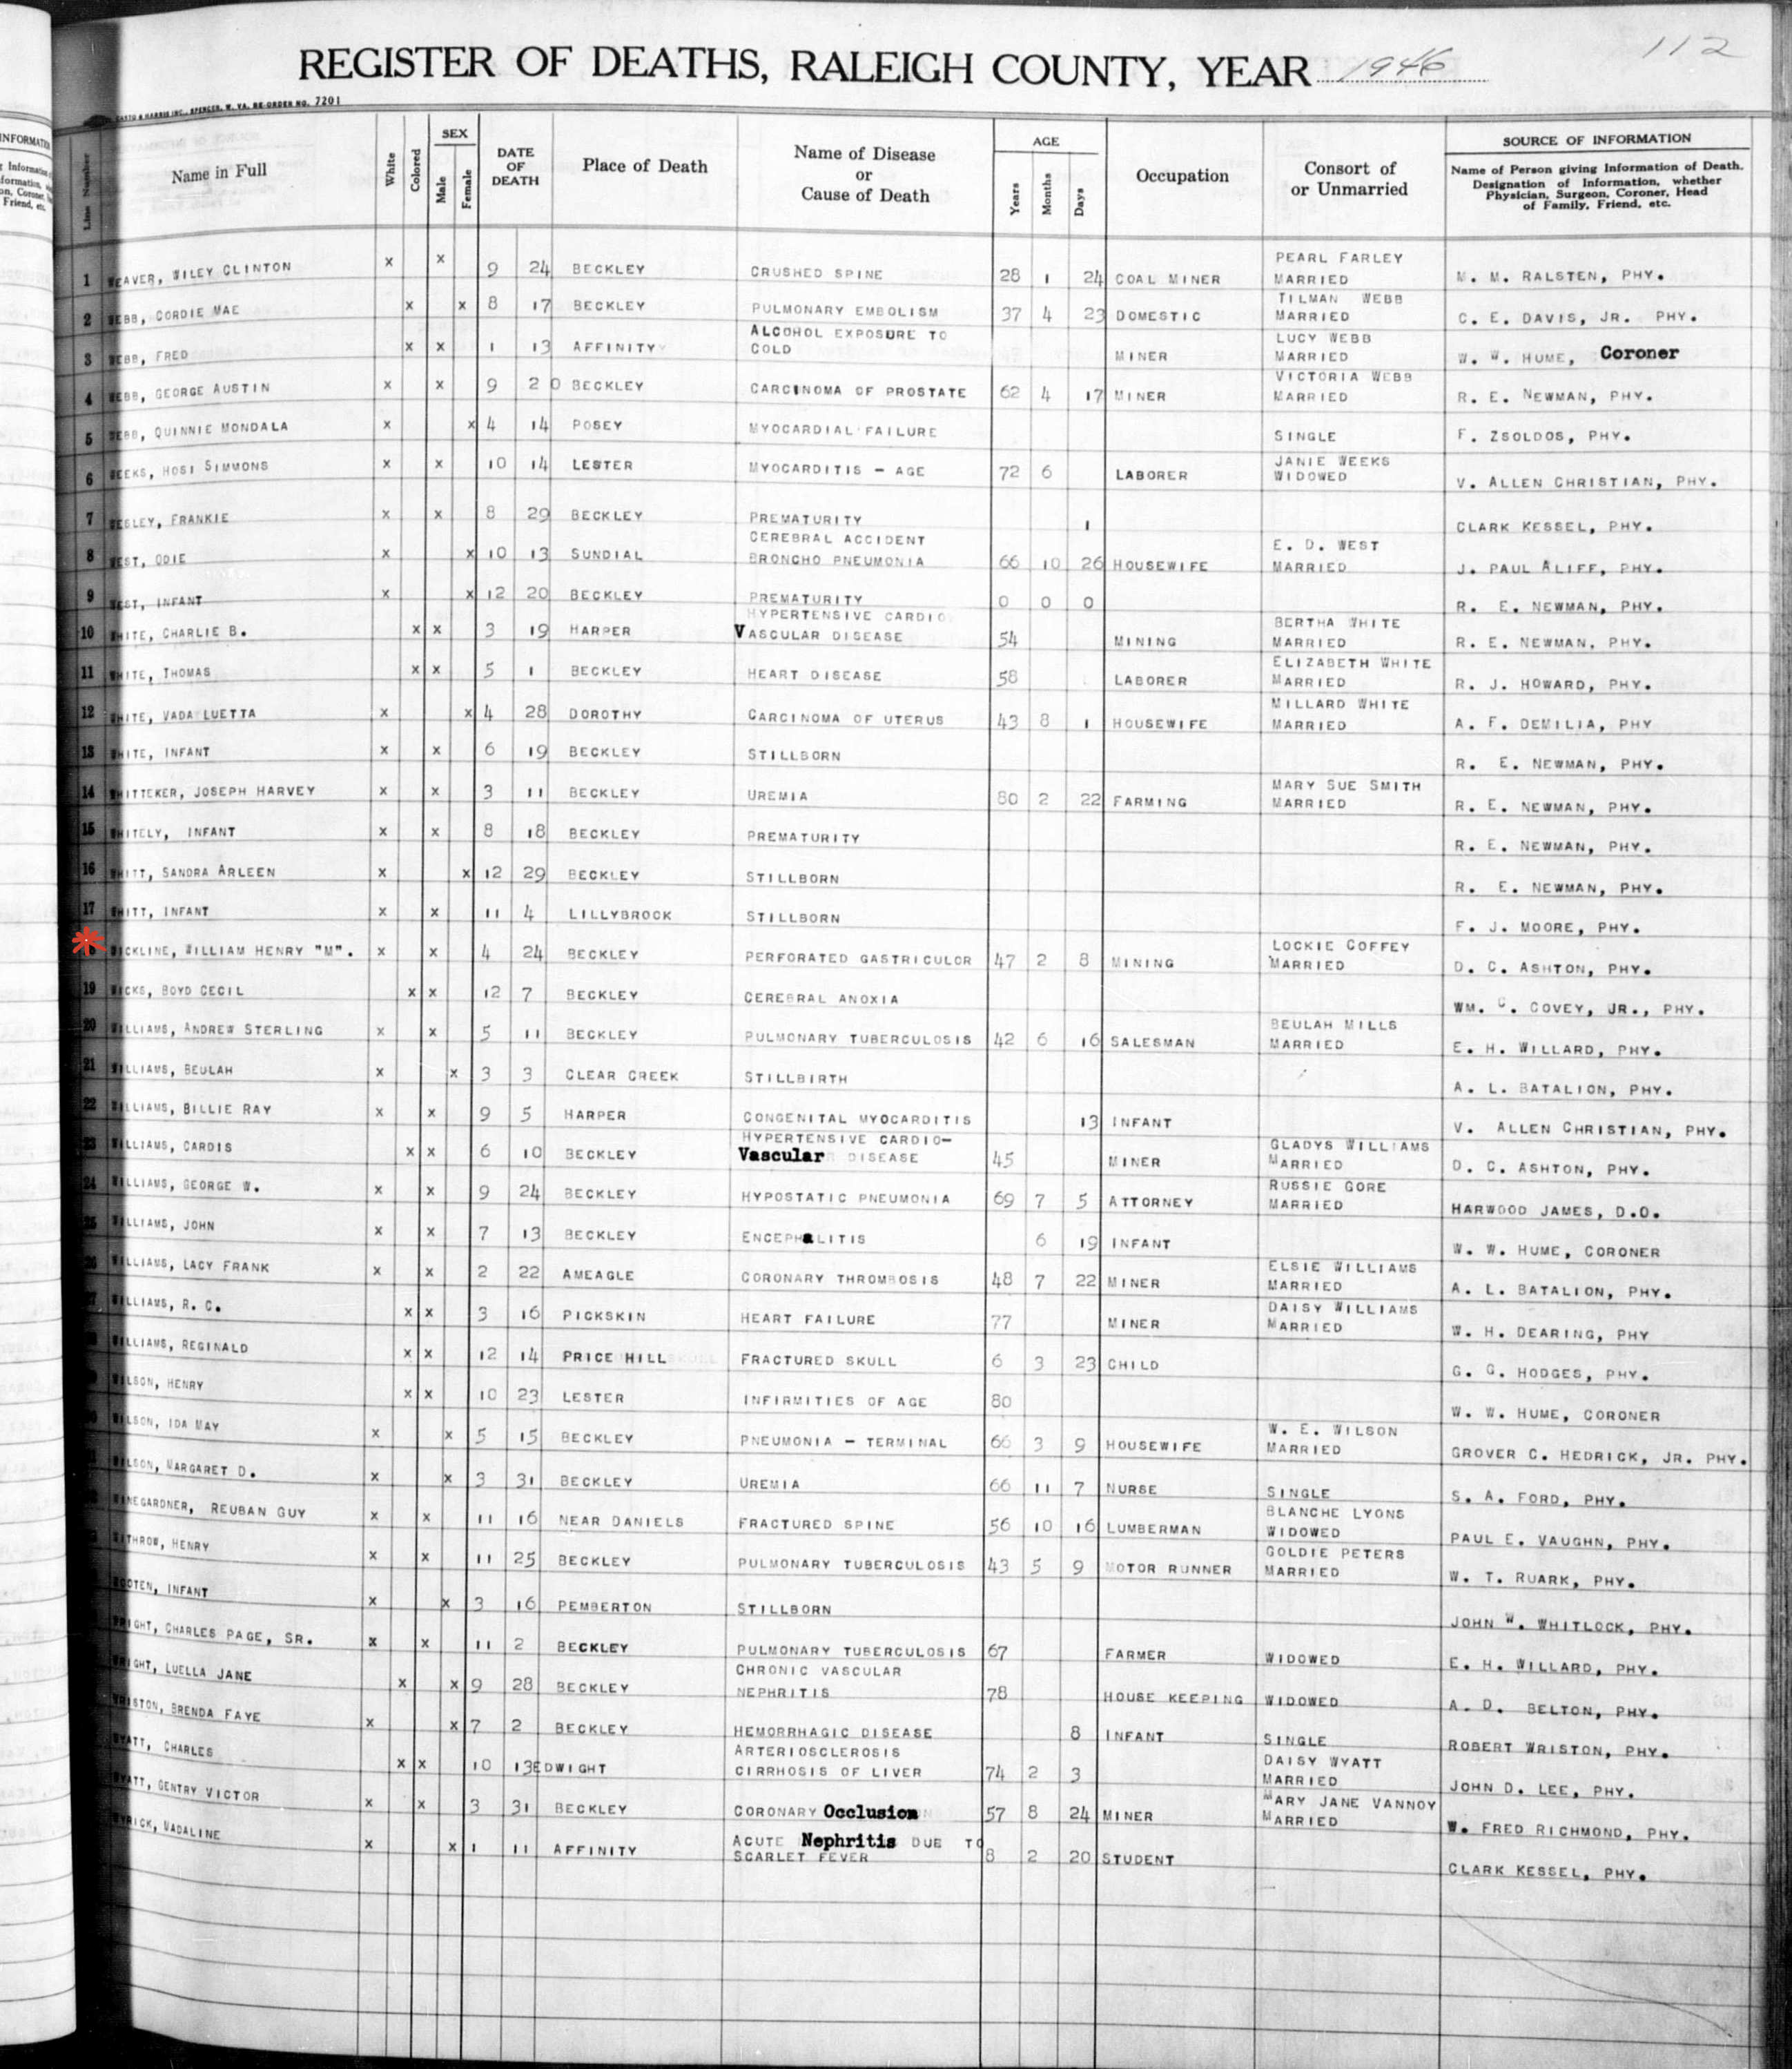 112
REGISTER OF DEATHS, RALEIGH COUNTY, YEAR 1946
CASTO & HARRIS INC., SPENCER, W. VA. RE-ORDER NO. 7201
Line Number
Name in Full
White
Colored
SEX
Male
Female
DATE OF DEATH
Place of Death
Name of Disease or Cause of Death
AGE
Years
Months
Days
Occupation
Consort of or Unmarried
SOURCE OF INFORMATION
Name of Person giving Information of Death. Designation of Information, whether Physician, Surgeon, Coroner, Head of Family, Friend, etc.
1 WEAVER, WILEY CLINTON x x 9 24 BECKLEY CRUSHED SPINE 28 1 24 COAL MINER PEARL FARLEY MARRIED M. M. RALSTEN, PHY.
2 WEBB, CORDIE MAE x x 8 17 BECKLEY PULMONARY EMBOLISM 37 4 23 DOMESTIC TILMAN WEBB MARRIED C. E. DAVIS, JR. PHY.
3 WEBB, FRED x x 1 13 AFFINITY ALCOHOL EXPOSURE TO COLD MINER LUCY WEBB MARRIED W. W. HUME, Coroner
4 WEBB, GEORGE AUSTIN x x 9 20 BECKLEY CARCINOMA OF PROSTATE 62 4 17 MINER VICTORIA WEBB MARRIED R. E. NEWMAN, PHY.
5 WEBB, QUINNIE MONDALA x x 4 14 POSEY MYOCARDIAL FAILURE SINGLE F. ZSOLDOS, PHY.
6 WEEKS, HOSI SIMMONS x x 10 14 LESTER MYOCARDITIS - AGE 72 6 LABORER JANIE WEEKS WIDOWED V. ALLEN CHRISTIAN, PHY.
7 WESLEY, FRANKIE x x 8 29 BECKLEY PREMATURITY 1 CLARK KESSEL, PHY.
8 WEST, ODIE x x 10 13 SUNDIAL CEREBRAL ACCIDENT BRONCHO PNEUMONIA 66 10 26 HOUSEWIFE E. D. WEST MARRIED J. PAUL ALIFF, PHY.
9 WEST, INFANT x x 12 20 BECKLEY PREMATURITY 0 0 0 R. E. NEWMAN, PHY.
10 WHITE, CHARLIE B. x x 3 19 HARPER HYPERTENSIVE CARDIO VASCULAR DISEASE 54 MINING BERTHA WHITE MARRIED R. E. NEWMAN, PHY.
11 WHITE, THOMAS x x 5 1 BECKLEY HEART DISEASE 58 LABORER ELIZABETH WHITE MARRIED R. J. HOWARD, PHY.
12 WHITE, VADA LUETTA x x 4 28 DOROTHY CARCINOMA OF UTERUS 43 8 1 HOUSEWIFE MILLARD WHITE MARRIED A. F. DEMILIA, PHY
13 WHITE, INFANT x x 6 19 BECKLEY STILLBORN R. E. NEWMAN, PHY.
14 WHITTEKER, JOSEPH HARVEY x x 3 11 BECKLEY UREMIA 80 2 22 FARMING MARY SUE SMITH MARRIED R. E. NEWMAN, PHY.
15 WHITELY, INFANT x x 8 18 BECKLEY PREMATURITY R. E. NEWMAN, PHY.
16 WHITT, SANDRA ARLEEN x x 12 29 BECKLEY STILLBORN R. E. NEWMAN, PHY.
17 WHITT, INFANT x x 11 4 LILLYBROOK STILLBORN F. J. MOORE, PHY.
WICKLINE, WILLIAM HENRY "M". x x 4 24 BECKLEY PERFORATED GASTRICULCR 47 2 8 MINING LOCKIE COFFEY MARRIED D. C. ASHTON, PHY.
19 WICKS, BOYD CECIL x x 12 7 BECKLEY CEREBRAL ANOXIA WM. C. COVEY, JR., PHY.
20 WILLIAMS, ANDREW STERLING x x 5 11 BECKLEY PULMONARY TUBERCULOSIS 42 6 16 SALESMAN BEULAH MILLS MARRIED E. H. WILLARD, PHY.
21 WILLIAMS, BEULAH x x 3 3 CLEAR CREEK STILLBIRTH A. L. BATALION, PHY.
22 WILLIAMS, BILLIE RAY x x 9 5 HARPER CONGENITAL MYOCARDITIS 13 INFANT V. ALLEN CHRISTIAN, PHY.
23 WILLIAMS, CARDIS x x 6 10 BECKLEY HYPERTENSIVE CARDIO- Vascular DISEASE 45 MINER GLADYS WILLIAMS MARRIED D. C. ASHTON, PHY.
24 WILLIAMS, GEORGE W. x x 9 24 BECKLEY HYPOSTATIC PNEUMONIA 69 7 5 ATTORNEY RUSSIE GORE MARRIED HARWOOD JAMES, D.O.
25 WILLIAMS, JOHN x x 7 13 BECKLEY ENCEPHALITIS 6 19 INFANT W. W. HUME, CORONER
26 WILLIAMS, LACY FRANK x x 2 22 AMEAGLE CORONARY THROMBOSIS 48 7 22 MINER ELSIE WILLIAMS MARRIED A. L. BATALION, PHY.
WILLIAMS, R. C. x x 3 16 PICKSKIN HEART FAILURE 77 MINER DAISY WILLIAMS MARRIED W. H. DEARING, PHY
WILLIAMS, REGINALD x x 12 14 PRICE HILL FRACTURED SKULL 6 3 23 CHILD G. G. HODGES, PHY.
WILSON, HENRY x x 10 23 LESTER INFIRMITIES OF AGE 80 W. W. HUME, CORONER
WILSON, IDA MAY x x 5 15 BECKLEY PNEUMONIA - TERMINAL 66 3 9 HOUSEWIFE W. E. WILSON MARRIED GROVER C. HEDRICK, JR. PHY.
WILSON, MARGARET D. x x 3 31 BECKLEY UREMIA 66 11 7 NURSE SINGLE S. A. FORD, PHY.
WINEGARDNER, REUBAN GUY x x 11 16 NEAR DANIELS FRACTURED SPINE 56 10 16 LUMBERMAN BLANCHE LYONS WIDOWED PAUL E. VAUGHN, PHY.
WITHROW, HENRY x x 11 25 BECKLEY PULMONARY TUBERCULOSIS 43 5 9 MOTOR RUNNER GOLDIE PETERS MARRIED W. T. RUARK, PHY.
WOOTEN, INFANT x x 3 16 PEMBERTON STILLBORN JOHN W. WHITLOCK, PHY.
WRIGHT, CHARLES PAGE, SR. x x 11 2 BECKLEY PULMONARY TUBERCULOSIS 67 FARMER WIDOWED E. H. WILLARD, PHY.
WRIGHT, LUELLA JANE x x 9 28 BECKLEY CHRONIC VASCULAR NEPHRITIS 78 HOUSE KEEPING WIDOWED A. D. BELTON, PHY.
WRISTON, BRENDA FAYE x x 7 2 BECKLEY HEMORRHAGIC DISEASE 8 INFANT SINGLE ROBERT WRISTON, PHY.
WYATT, CHARLES x x 10 13 EDWIGHT ARTERIOSCLEROSIS CIRRHOSIS OF LIVER 74 2 3 DAISY WYATT MARRIED JOHN D. LEE, PHY.
WYATT, GENTRY VICTOR x x 3 31 BECKLEY CORONARY Occlusion 57 8 24 MINER MARY JANE VANNOY MARRIED W. FRED RICHMOND, PHY.
WYRICK, MADALINE x x 1 11 AFFINITY ACUTE Nephritis DUE TO SCARLET FEVER 8 2 20 STUDENT CLARK KESSEL, PHY.